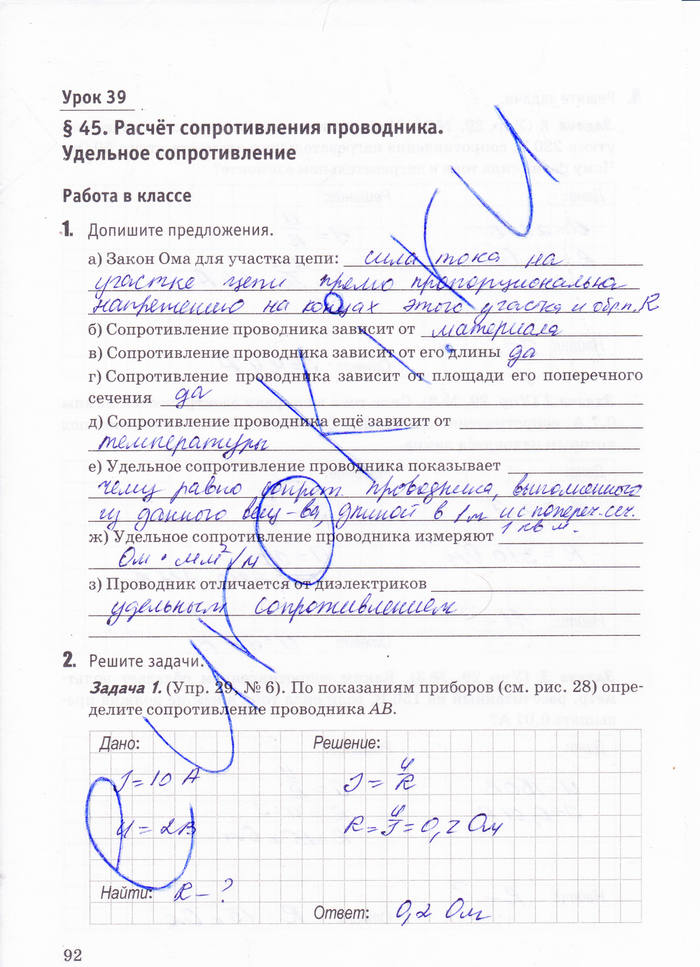 Урок 39
§ 45. Расчёт сопротивления проводника.
Удельное сопротивление
Работа в классе
1. Допишите предложения.
а) Закон Ома для участка цепи: сила тока на
участке цепи прямо пропорциональна
напряжению на концах этого участка и обр.п. R
б) Сопротивление проводника зависит от материала
в) Сопротивление проводника зависит от его длины да
г) Сопротивление проводника зависит от площади его поперечного
сечения да
д) Сопротивление проводника ещё зависит от
температуры
е) Удельное сопротивление проводника показывает
чему равно сопрот. проводника, выполненного
из данного вещ-ва, длиной в 1м и с попереч. сеч.
1 кв м.
ж) Удельное сопротивление проводника измеряют
Ом · мм²/м
з) Проводник отличается от диэлектриков
удельным сопротивлением
2. Решите задачи.
Задача 1. (Упр. 29, № 6). По показаниям приборов (см. рис. 28) опре-
делите сопротивление проводника АВ.
Дано: Решение:
I = 10 А I = U/R
U = 2В R = U/I = 0,2 Ом
Найти: R - ?
Ответ: 0,2 Ом
92